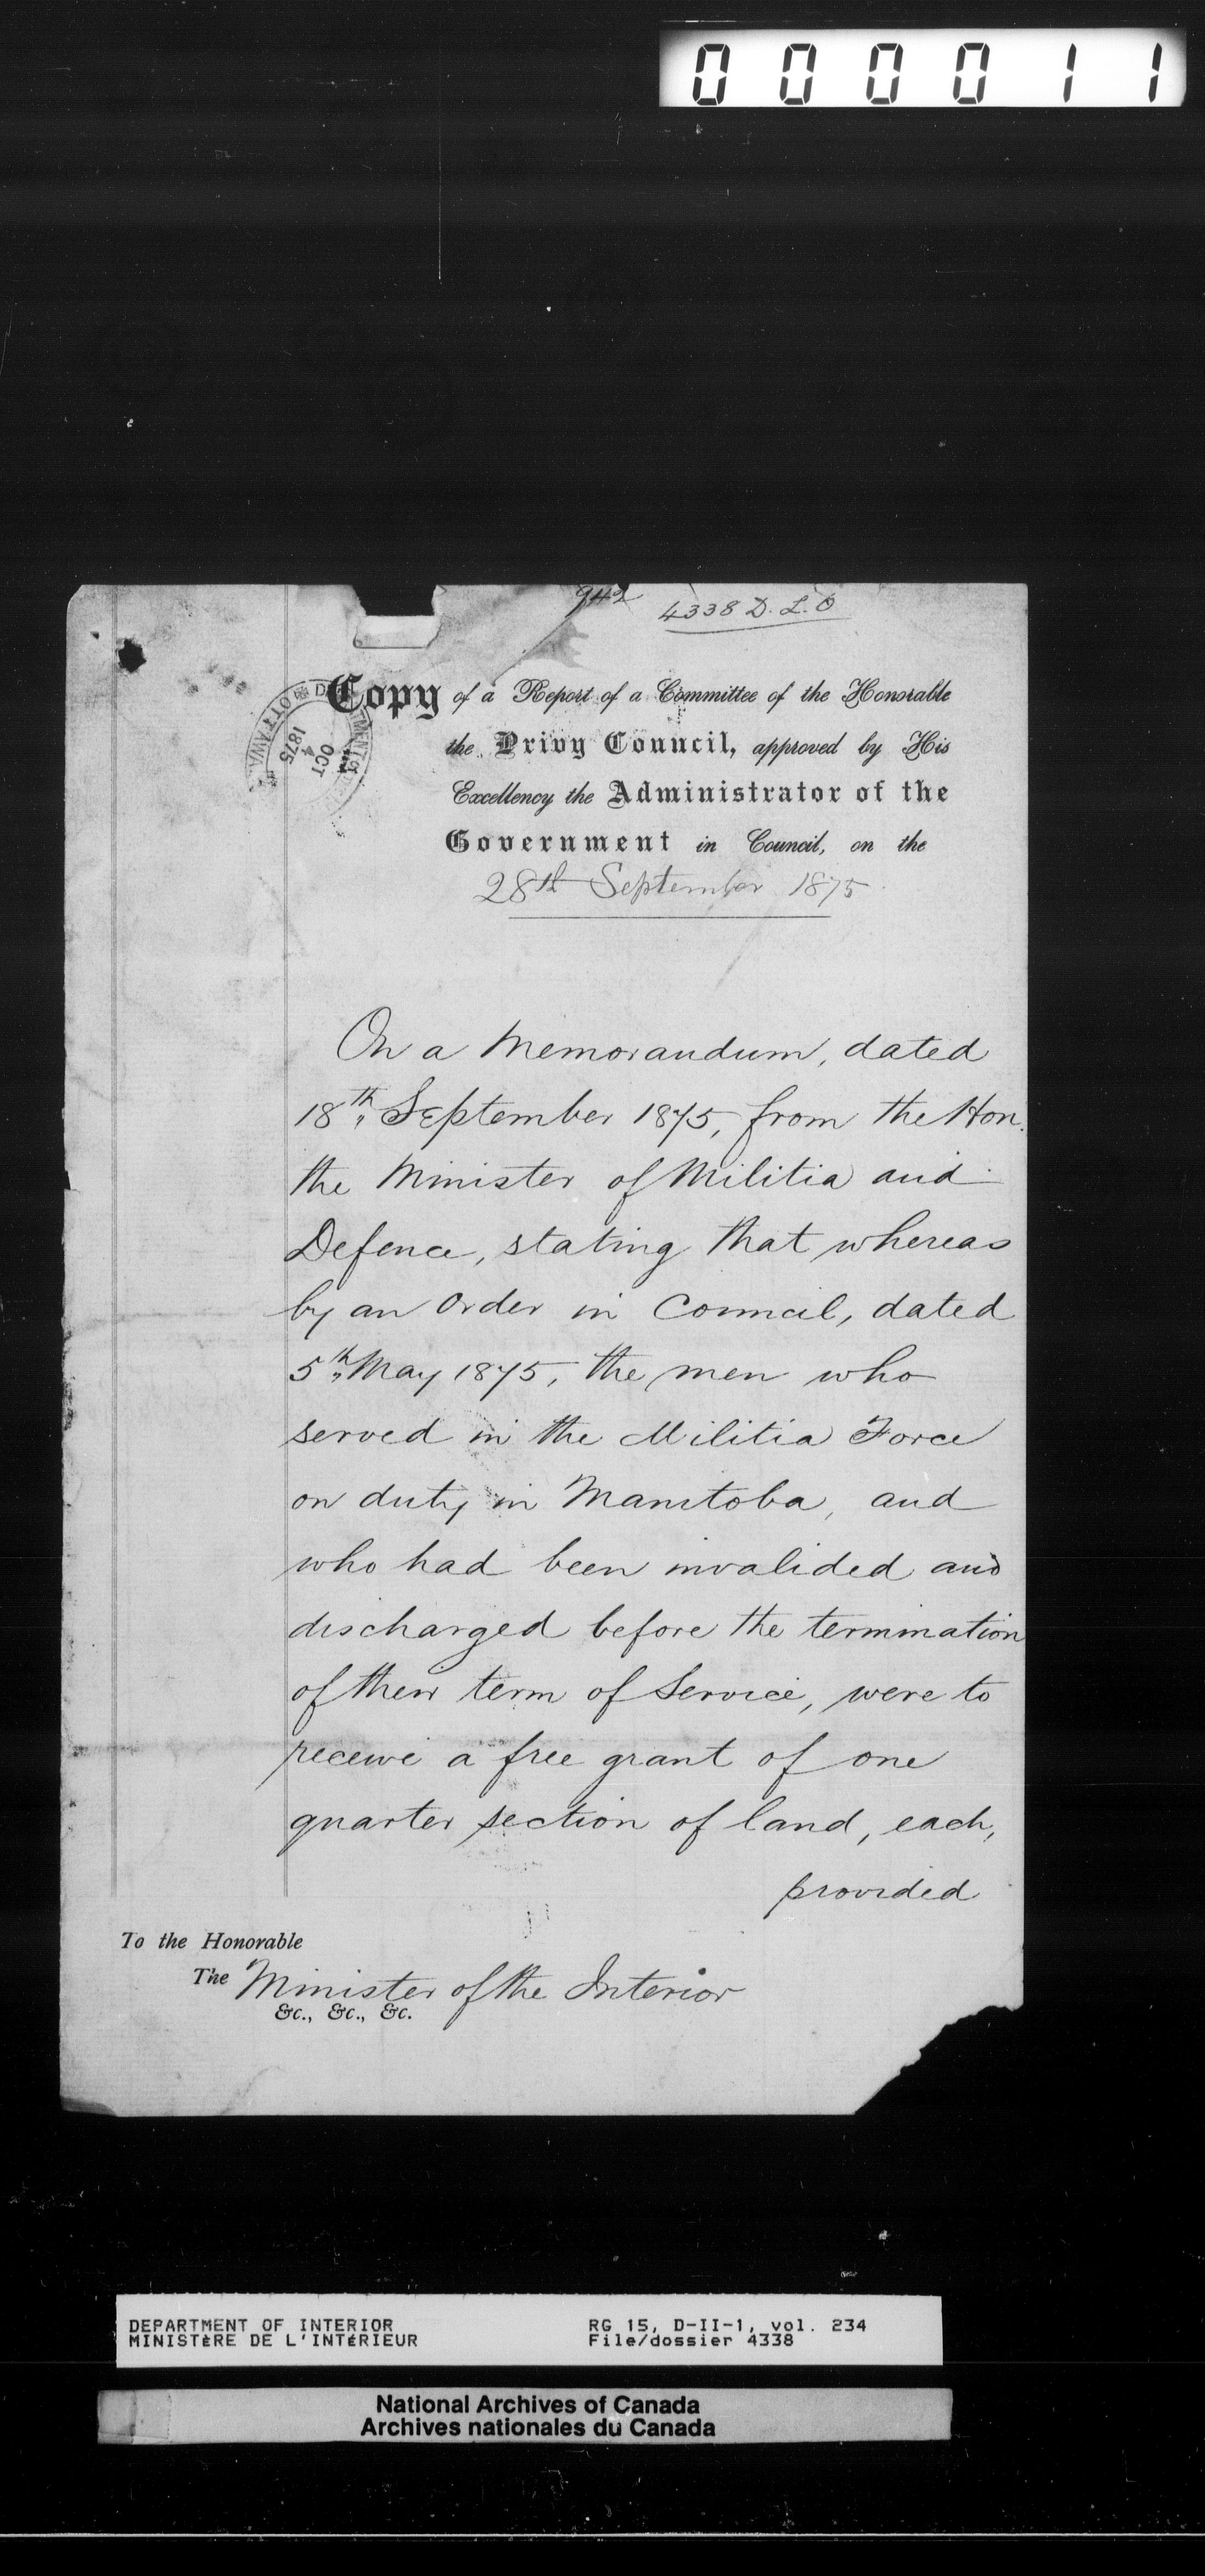 000011
942
4338 D. L. O
Copy of a Report of a Committee of the Honorable
the Privy Council, approved by His
Excellency the Administrator of the
Government in Council, on the
28th September 1875
OTTAWA
OCT
4
1875
On a Memorandum, dated
18th September 1875, from the Hon.
the Minister of Militia and
Defence, stating that whereas
by an Order in Council, dated
5th May 1875, the men who
served in the Militia Force
on duty in Manitoba, and
who had been invalided and
discharged before the termination
of their term of Service, were to
receive a free grant of one
quarter section of land, each,
provided
To the Honorable
The Minister of the Interior
&c., &c., &c.
DEPARTMENT OF INTERIOR
MINISTÈRE DE L'INTÉRIEUR
RG 15, D-II-1, vol. 234
File/dossier 4338
National Archives of Canada
Archives nationales du Canada